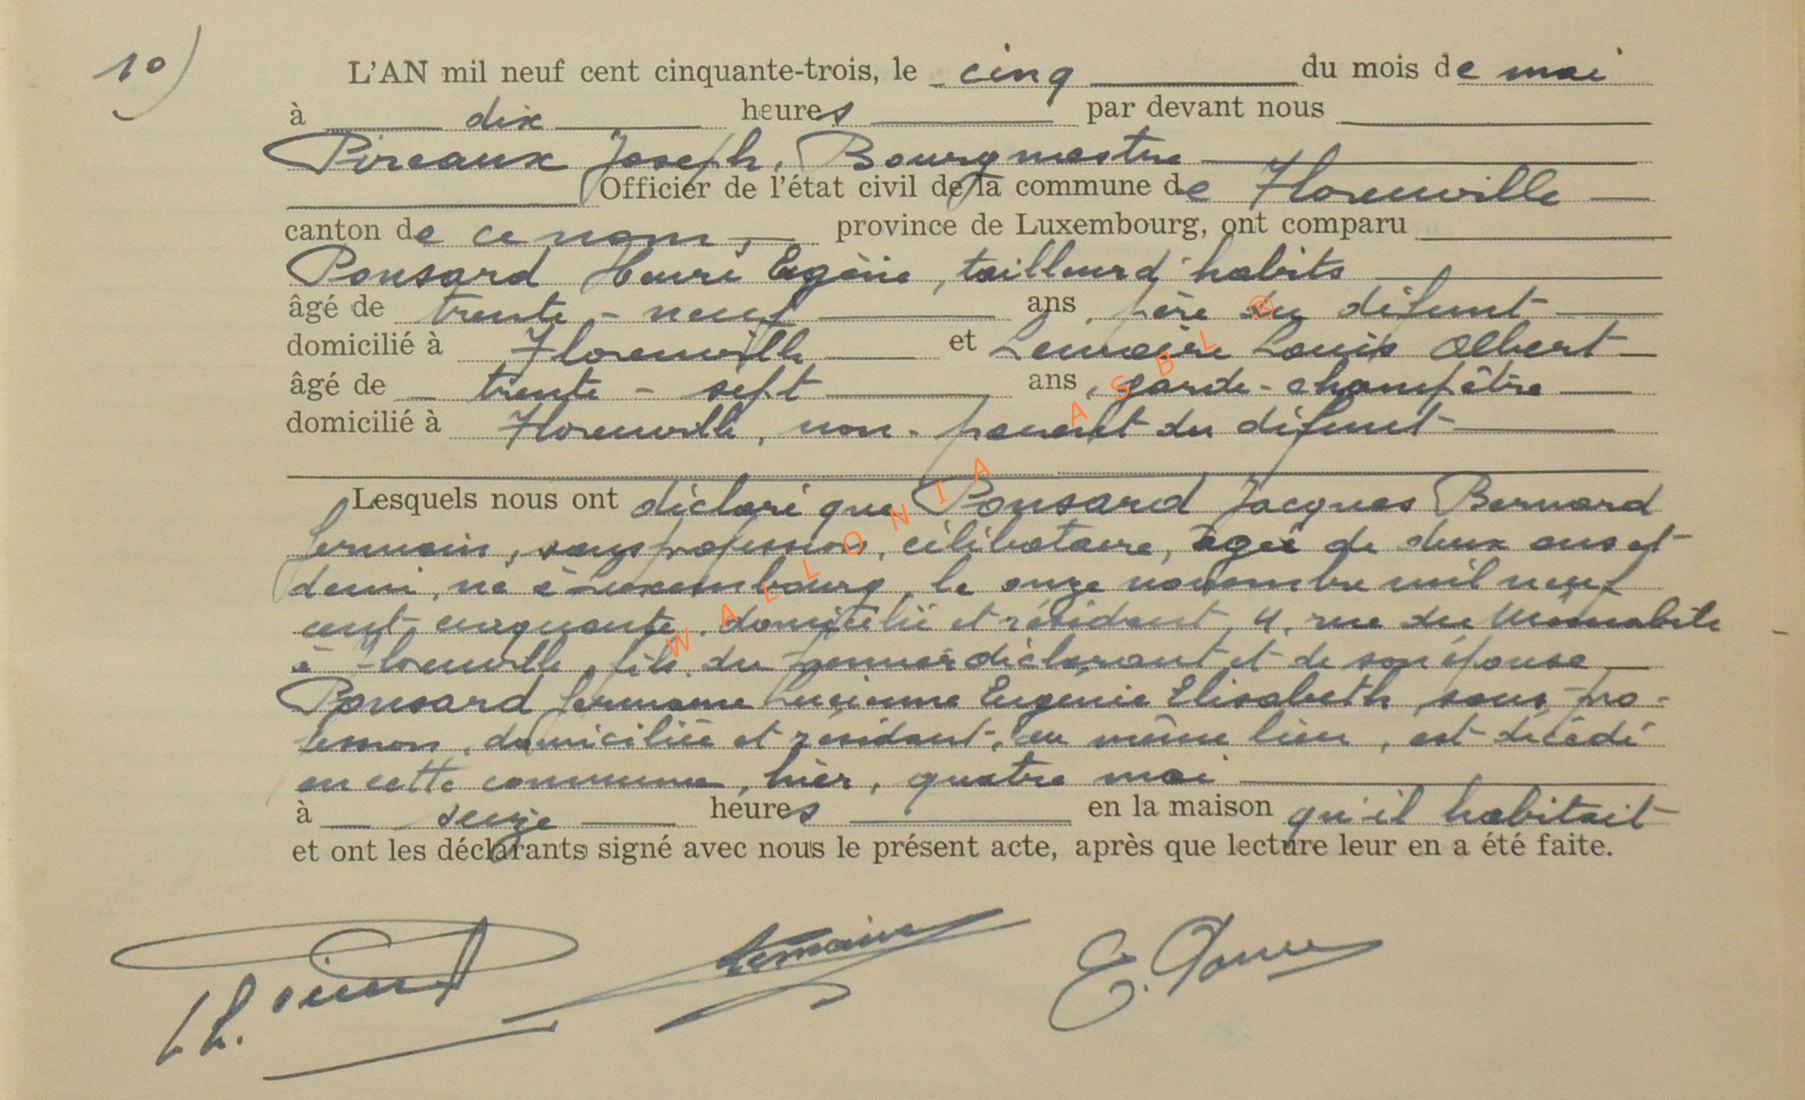 10)
L'AN mil neuf cent cinquante-trois, le cinq du mois de mai
à dix heures par devant nous
Pireaux Joseph, Bourgmestre
Officier de l'état civil de la commune de Florenville
canton de ce nom, province de Luxembourg, ont comparu
Ponsard Henri Eugène, tailleur d'habits
âgé de trente-neuf ans, père du défunt
domicilié à Florenville et Lemaire Louis Albert
âgé de trente-sept ans, garde-champêtre
domicilié à Florenville, non-parent du défunt
Lesquels nous ont déclaré que Ponsard Jacques Bernard
Germain, sans profession, célibataire, âgé de deux ans et
demi, né à Luxembourg, le onze novembre mil neuf
cent cinquante, domicilié et résidant, 4, rue du
à Florenville, fils du premier déclarant et de son épouse
Ponsard Germaine Lucienne Eugénie Elisabeth, sans pro-
fession, domiciliée et résidant, au même lieu, est décédé
en cette commune, hier, quatre mai
à seize heures en la maison qu'il habitait
et ont les déclarants signé avec nous le présent acte, après que lecture leur en a été faite.
Lemaire
WALLONIA ASBL ®